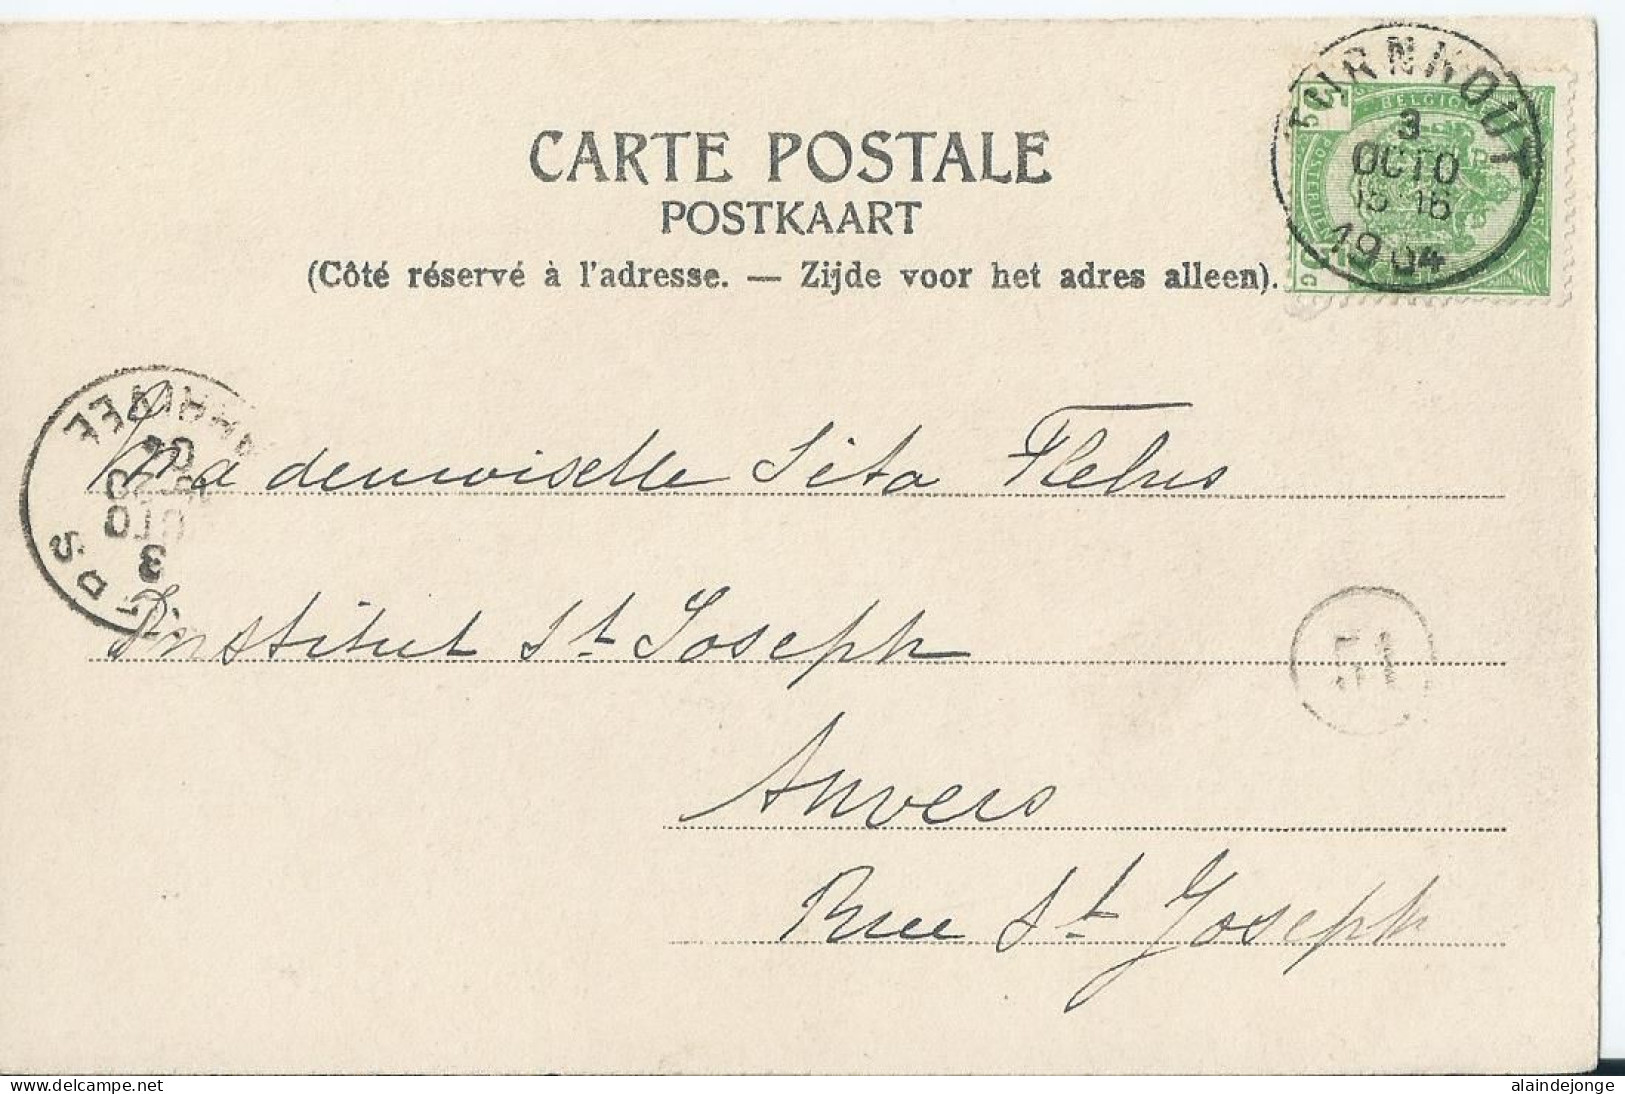 CARTE POSTALE
POSTKAART
(Côté réservé à l'adresse. — Zijde voor het adres alleen).
TURNHOUT
3
OCTO
1904
BELGIQUE
5
ARRIVÉE
3
OCTO
Mademoiselle Sita Flebus
Institut St Joseph
Anvers
Rue St Joseph
51
www.delcampe.net
alaindejonge